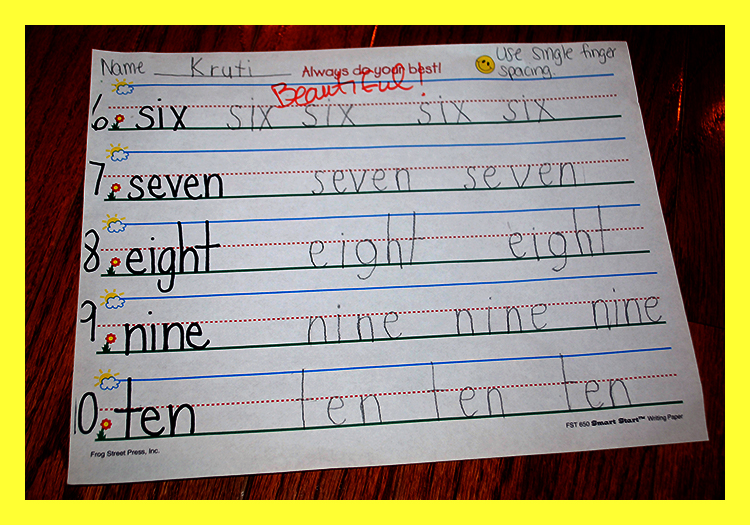 Name Kruti Always do your best! Use single finger
spacing.
Beautiful!
6. six six six six six
7. seven seven seven
8. eight eight eight
9. nine nine nine nine
10. ten ten ten ten
FST 650 Smart Start™ Writing Paper
Frog Street Press, Inc.